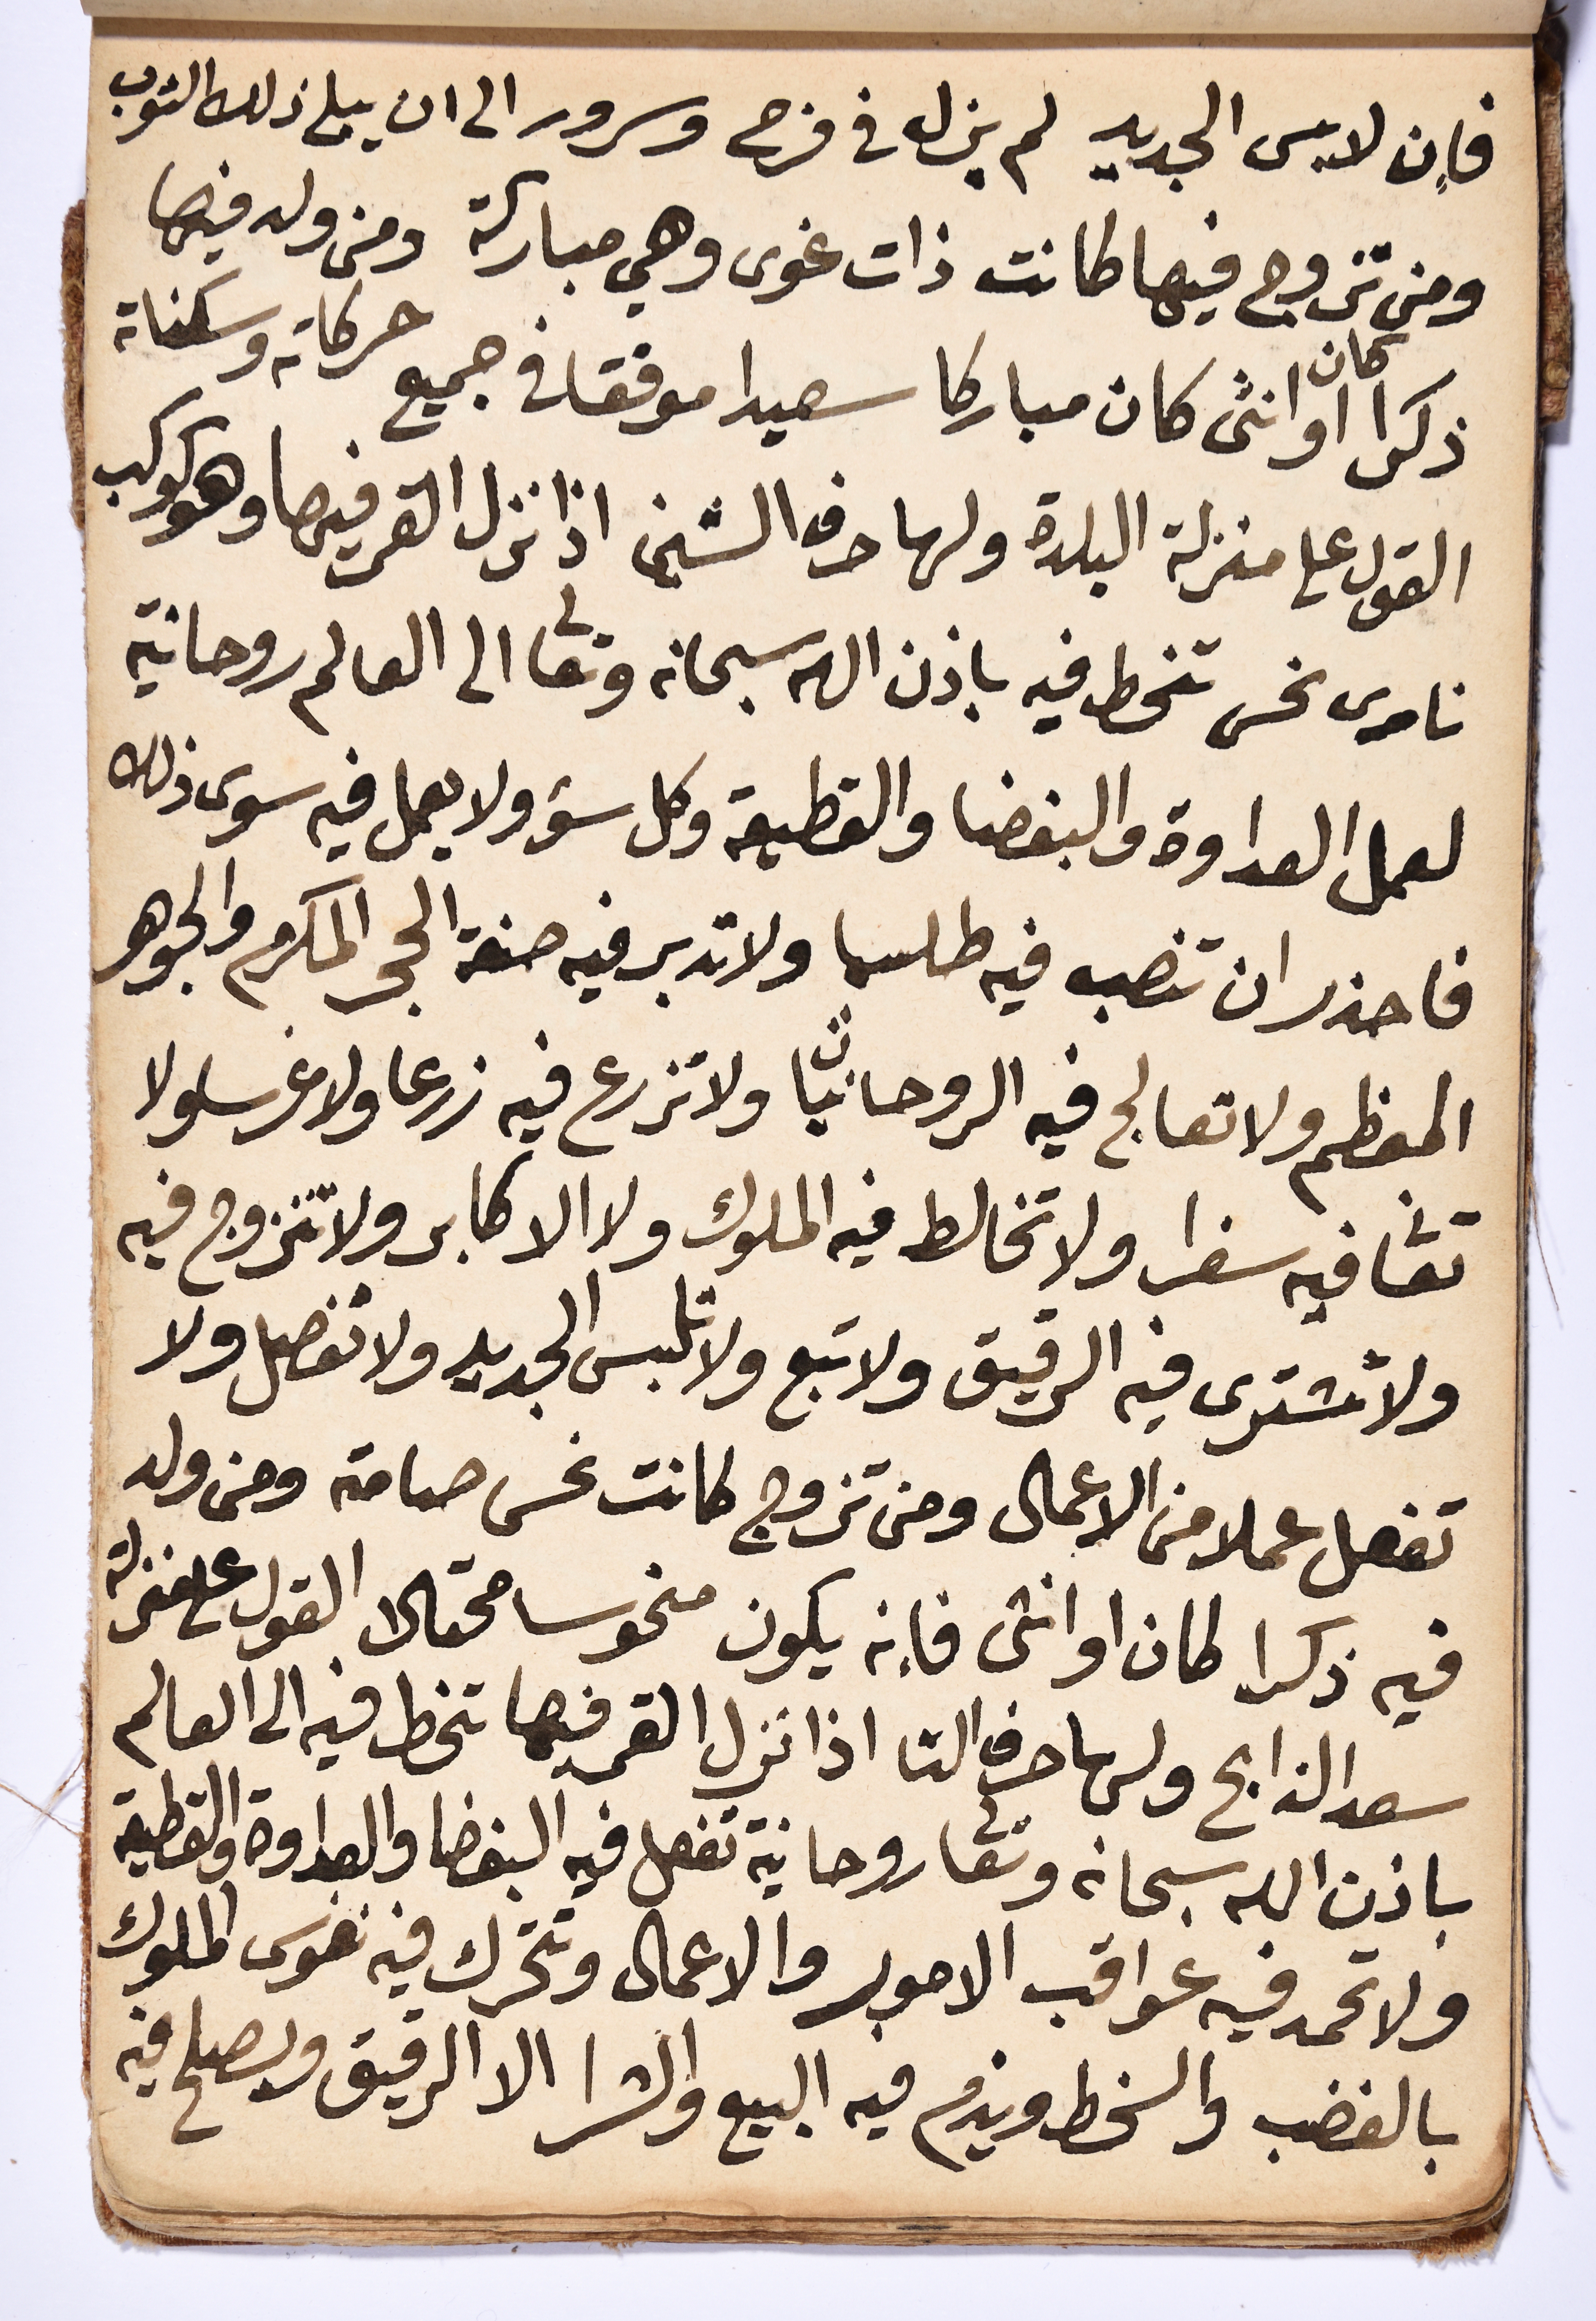 فإن لابس الجديد لم يزل في فرح وسرور الى ان يبلى ذلك الثوب
ومن تزوج فيها كانت ذات غوى وهي مباركة ومن ولد فيها
ذكرا كان او انثى كان مباركا سعيدا موفقا في جميع حركاته وسكناته
القول على منزلة البلدة ولها حرف الشين اذا نزل القمر فيها وهو كوكب
نارى نحس تنحط فيه باذن الله سبحانه وتعالى الى العالم روحانية
لعمل العداوة والبغضا والقطيعة وكل سؤ ولا يعمل فيه سوى ذلك
فاحذر ان تنصب فيه طلسما ولا تدبر فيه صنعة الحجر المكرم والجوهر
المعظم ولا تعالج فيه الروحانيات ولا تزرع فيه زرعا ولا غرسا ولا
فيه سفرا ولا تخالط فيه الملوك ولا الاكابر ولا تتزوج فيه
ولا تشترى فيه الرقيق ولا تبع ولا تلبس الجديد ولا تفصل ولا
تفعل عملا من الاعمال ومن تزوج كانت نحس صامته ومن ولد
فيه ذكرا كان او انثى فإنه يكون منحوسا محتالا القول على منزلة
سعد الذابح ولها حرف التا اذا نزل القمر فيها تنحط فيه الى العالم
باذن الله سبحانه وتعالى روحانية تفعل فيه البغضا والعداوة والقطيعة
ولا تحمد فيه عواقب الامور والاعمال وتتحرك فيه نفوس الملوك
بالغضب والسخط ويذم فيه البيع والشرا الا الرقيق ويصلح فيه